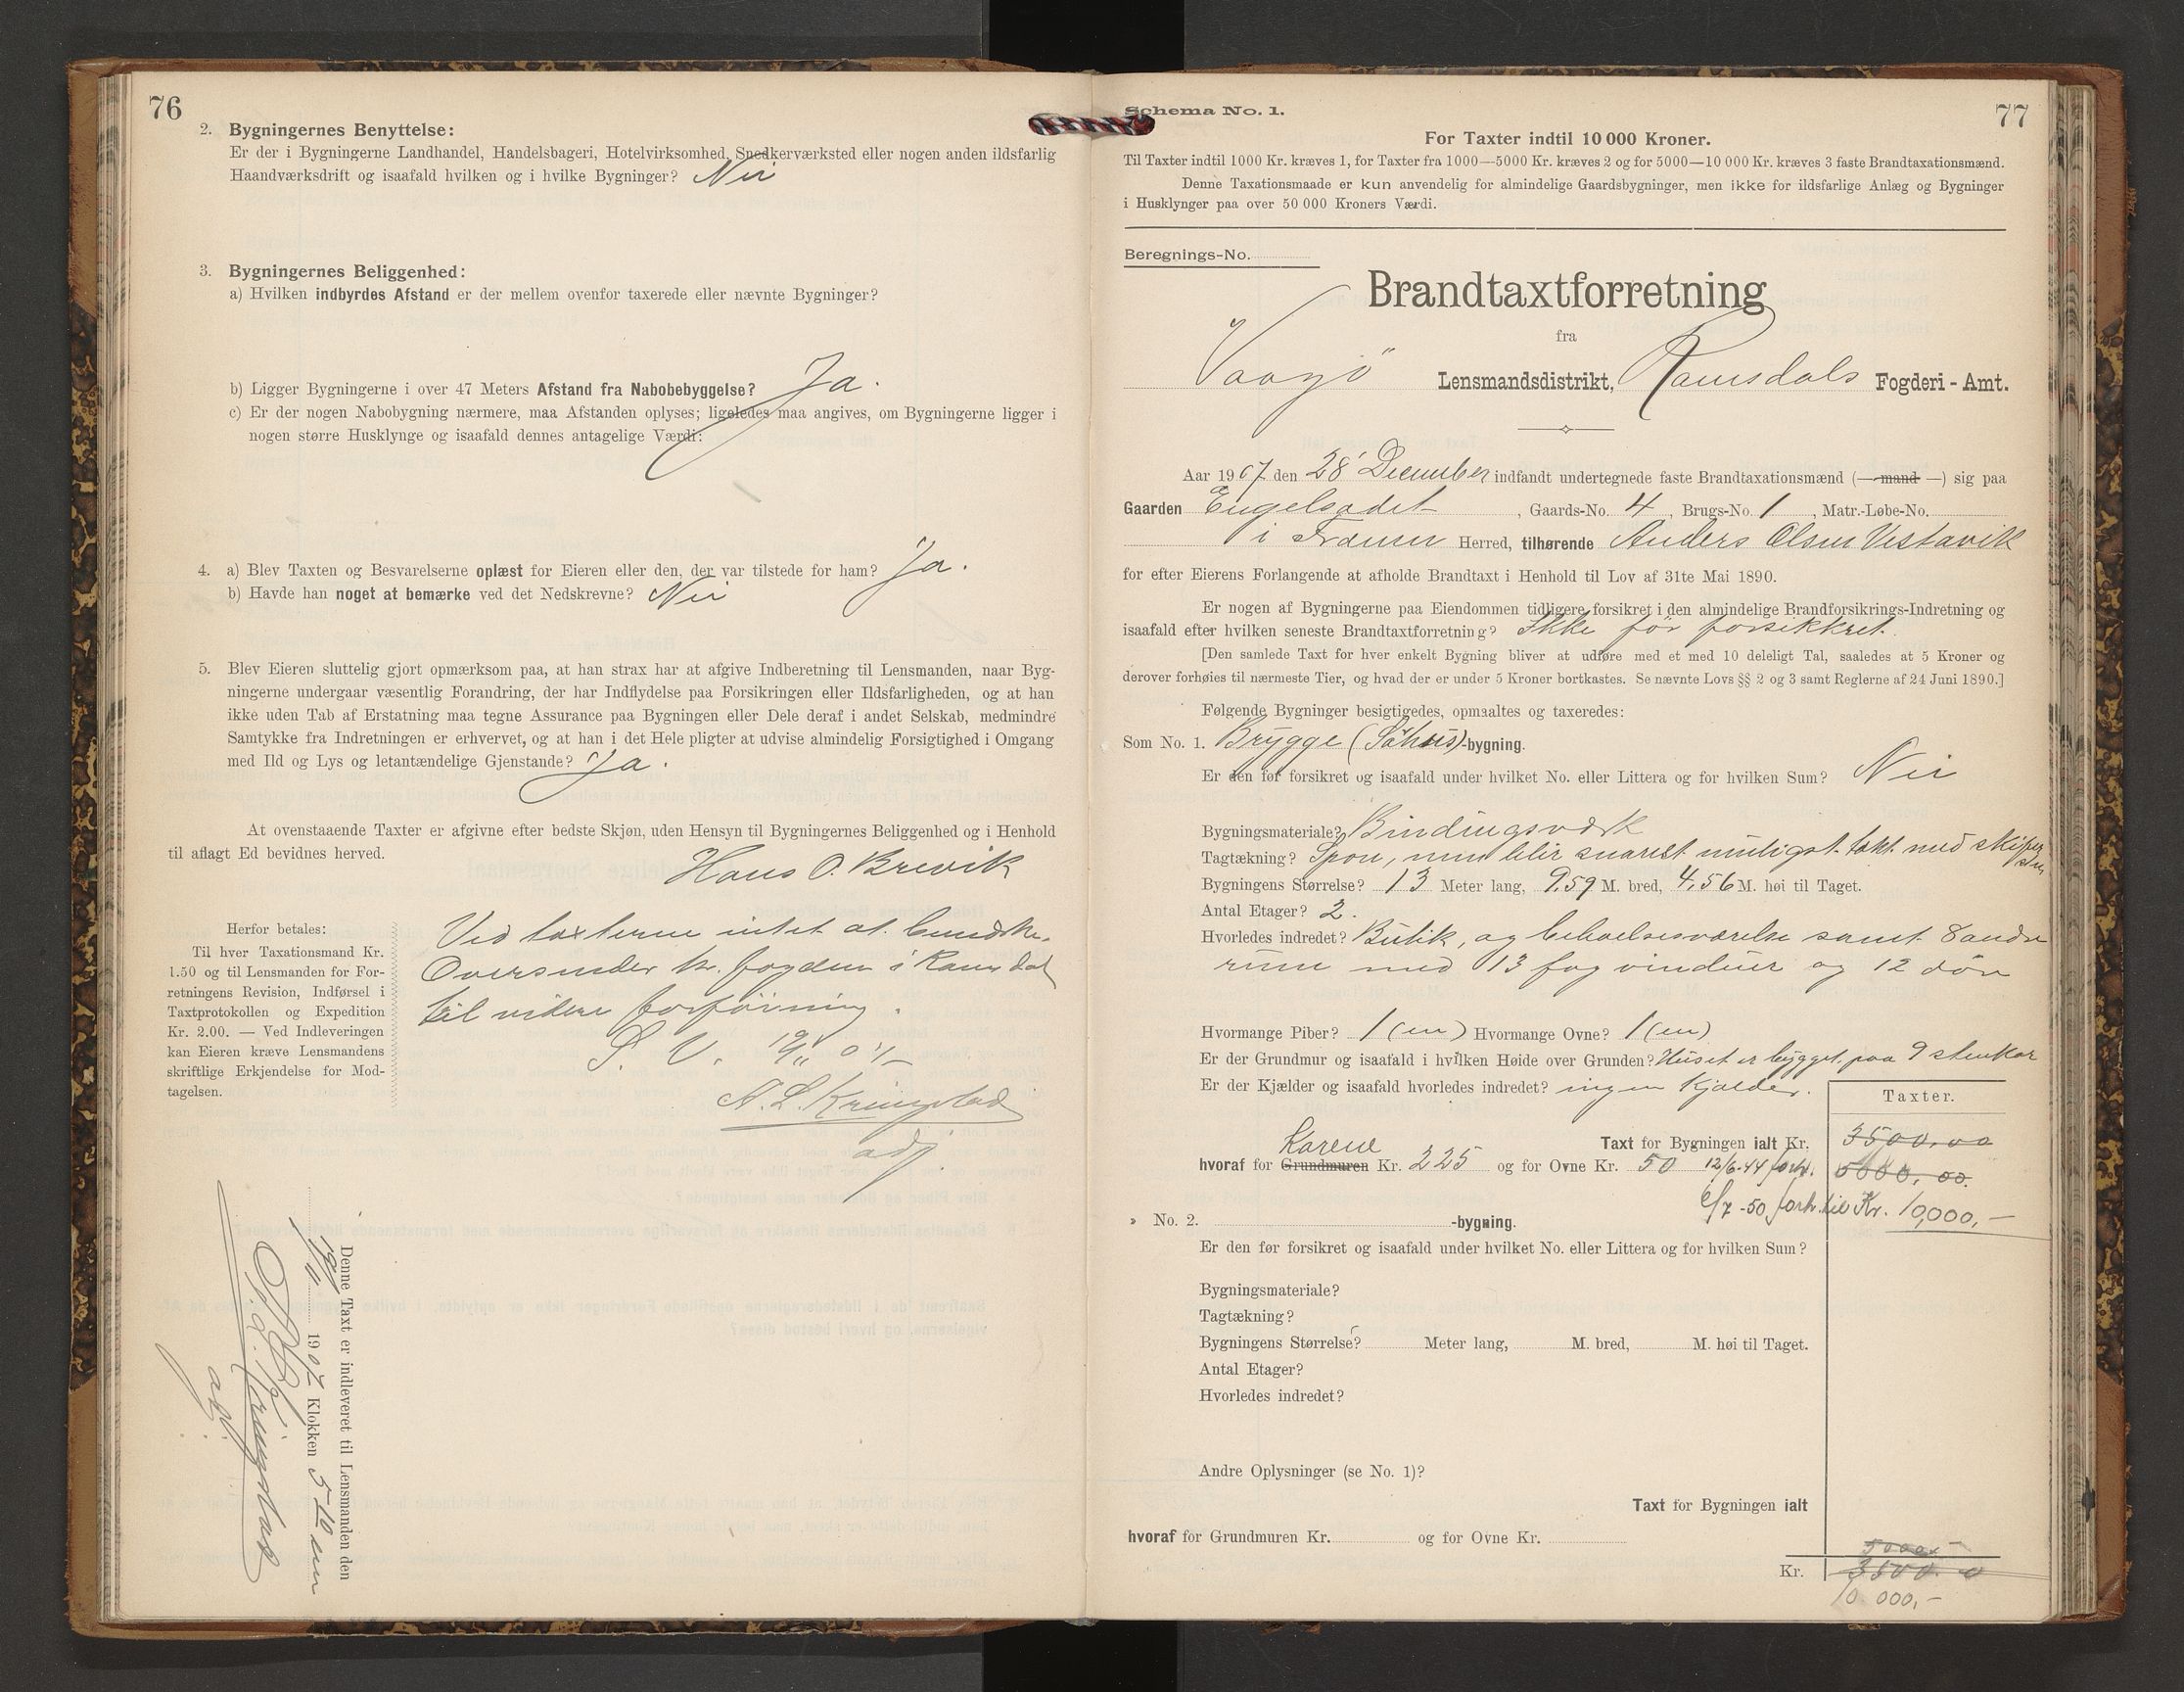 76
2. Bygningernes Benyttelse:
Er der i Bygningerne Landhandel, Handelsbageri, Hotelvirksomhed, Snedkerværksted eller nogen anden ildsfarlig
Haandværksdrift og isaafald hvilken og i hvilke Bygninger? Nei
3. Bygningernes Beliggenhed:
a) Hvilken indbyrdes Afstand er der mellem ovenfor taxerede eller nævnte Bygninger?
b) Ligger Bygningerne i over 47 Meters Afstand fra Nabobebyggelse? Ja.
c) Er der nogen Nabobygning nærmere, maa Afstanden oplyses; ligeledes maa angives, om Bygningerne ligger i
nogen større Husklynge og isaafald dennes antagelige Værdi:
4. a) Blev Taxten og Besvarelserne oplæst for Eieren eller den, der var tilstede for ham? Ja.
b) Havde han noget at bemærke ved det Nedskrevne? Nei
5. Blev Eieren sluttelig gjort opmærksom paa, at han strax har at afgive Indberetning til Lensmanden, naar Byg-
ningerne undergaar væsentlig Forandring, der har Indflydelse paa Forsikringen eller Ildsfarligheden, og at han
ikke uden Tab af Erstatning maa tegne Assurance paa Bygningen eller Dele deraf i andet Selskab, medmindre
Samtykke fra Indretningen er erhvervet, og at han i det Hele pligter at udvise almindelig Forsigtighed i Omgang
med Ild og Lys og letantændelige Gjenstande? Ja.
At ovenstaaende Taxter er afgivne efter bedste Skjøn, uden Hensyn til Bygningernes Beliggenhed og i Henhold
til aflagt Ed bevidnes herved.
Hans O. Brevik
Herfor betales:
Til hver Taxationsmand Kr.
1.50 og til Lensmanden for For-
retningens Revision, Indførsel i
Taxtprotokollen og Expedition
Kr. 2.00. — Ved Indleveringen
kan Eieren kræve Lensmandens
skriftlige Erkjendelse for Mod-
tagelsen.
Ved taxterne intet at bemerke.
Oversendes hr. fogden i Ramsdal
til videre forføining.
S. V. 19/11 07
A. L. Kringstad
adj.
Denne Taxt er indleveret til Lensmanden den
19/11 1907 Klokken 5 10 em
A. L. Kringstad
adj.
77
Schema No. 1.
For Taxter indtil 10 000 Kroner.
Til Taxter indtil 1000 Kr. kræves 1, for Taxter fra 1000—5000 Kr. kræves 2 og for 5000—10 000 Kr. kræves 3 faste Brandtaxationsmænd.
Denne Taxationsmaade er kun anvendelig for almindelige Gaardsbygninger, men ikke for ildsfarlige Anlæg og Bygninger
i Husklynger paa over 50 000 Kroners Værdi.
Beregnings-No.
Brandtaxtforretning
fra
Vaagö Lensmandsdistrikt, Ramsdals Fogderi - Amt.
Aar 1907 den 28' December indfandt undertegnede faste Brandtaxationsmænd (— mand —) sig paa
Gaarden Engelsådet, Gaards-No. 4, Brugs-No. 1, Matr.-Løbe-No.
i Frænen Herred, tilhørende Anders Olsen Vestavik
for efter Eierens Forlangende at afholde Brandtaxt i Henhold til Lov af 31te Mai 1890.
Er nogen af Bygningerne paa Eiendommen tidligere forsikret i den almindelige Brandforsikrings-Indretning og
isaafald efter hvilken seneste Brandtaxtforretning? Ikke før forsikkret.
[Den samlede Taxt for hver enkelt Bygning bliver at udføre med et med 10 deleligt Tal, saaledes at 5 Kroner og
derover forhøies til nærmeste Tier, og hvad der er under 5 Kroner bortkastes. Se nævnte Lovs §§ 2 og 3 samt Reglerne af 24 Juni 1890.]
Følgende Bygninger besigtigedes, opmaaltes og taxeredes:
Som No. 1. Brygge (Söhus)-bygning.
Er den før forsikret og isaafald under hvilket No. eller Littera og for hvilken Sum? Nei
Bygningsmateriale? Bindingsværk
Tagtækning? Spon, men blir snarest muligst takt med skifer
Bygningens Størrelse? 13 Meter lang, 9,59 M. bred, 4,56 M. høi til Taget.
Antal Etager? 2.
Hvorledes indredet? Butik, og behoelsesværelse samt 8 andre
rum med 13 fag vinduer og 12 dör
Hvormange Piber? 1 (en) Hvormange Ovne? 1 (en)
Er der Grundmur og isaafald i hvilken Høide over Grunden? Huset er bygget paa 9 stenkar
Er der Kjælder og isaafald hvorledes indredet? ingen Kjælder.
Taxter.
Taxt for Bygningen ialt Kr. 3500,00
Karene
hvoraf for Grundmuren Kr. 225 og for Ovne Kr. 50 12/6-44 forh. 5000,00.
6/7 -50 forh. til Kr. 10,000,-
» No. 2. -bygning.
Er den før forsikret og isaafald under hvilket No. eller Littera og for hvilken Sum?
Bygningsmateriale?
Tagtækning?
Bygningens Størrelse? Meter lang, M. bred, M. høi til Taget.
Antal Etager?
Hvorledes indredet?
Andre Oplysninger (se No. 1)?
Taxt for Bygningen ialt
hvoraf for Grundmuren Kr. og for Ovne Kr.
5000,-
Kr. 3500.0
10 000,-